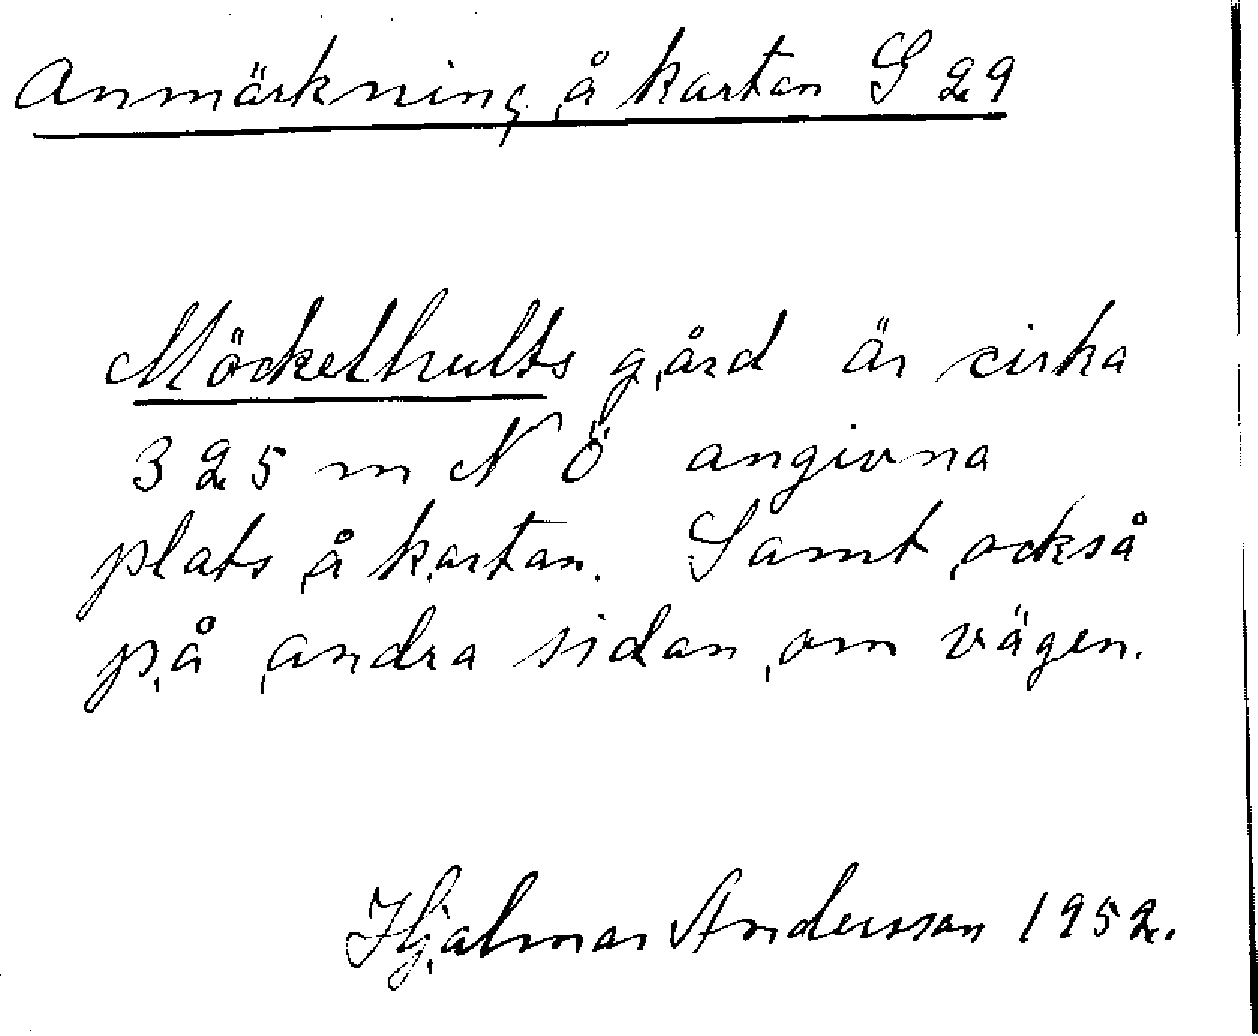 Anmärkning å kartan S 29
Möckelhults gård är cirka
325 m N Ö angivna
plats å kartan. Samt också
på andra sidan om vägen.
Hjalmar Andersson 1952.